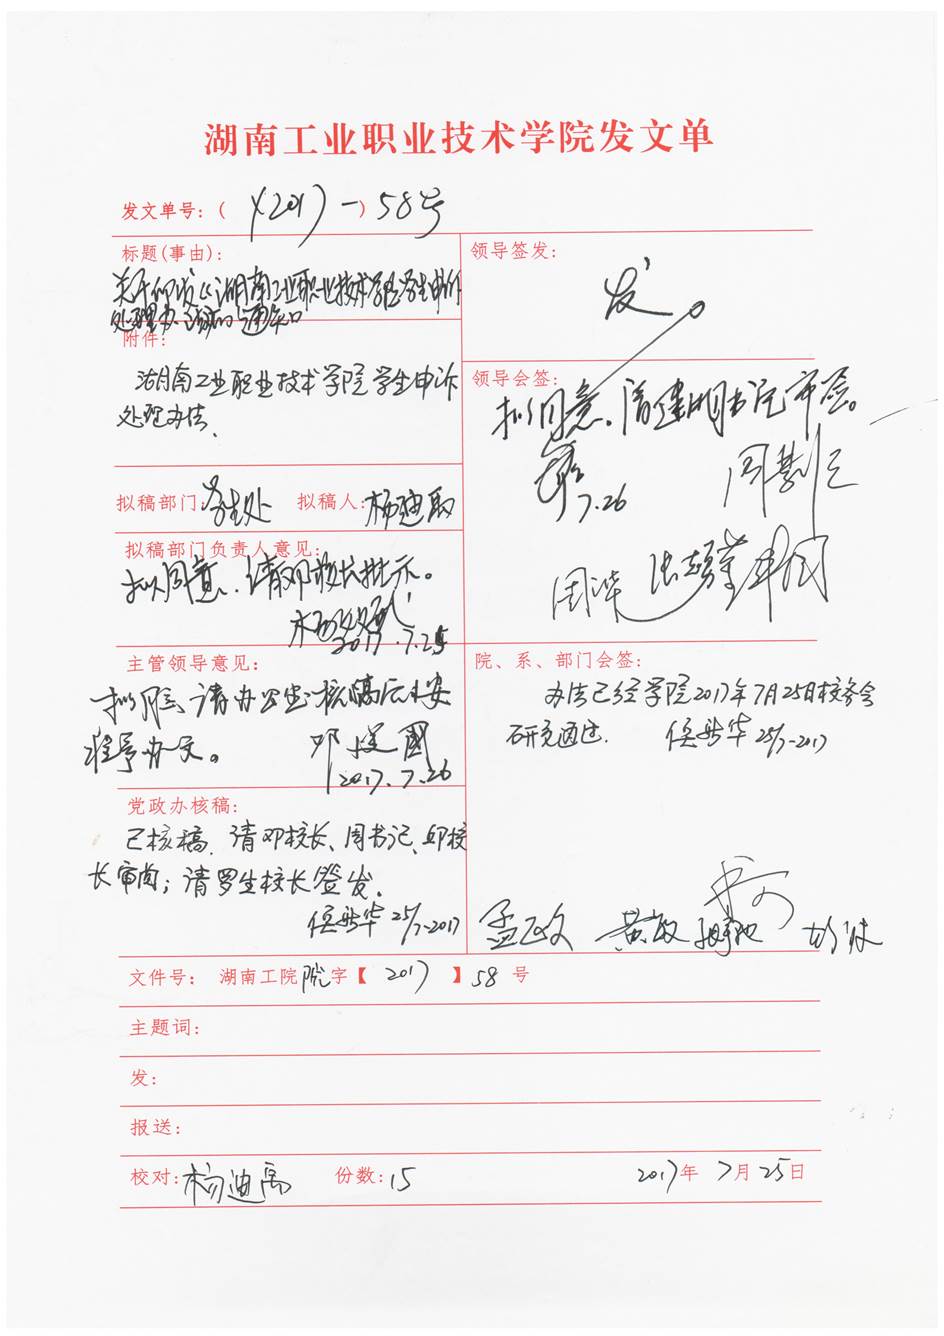 湖南工业职业技术学院发文单
发文单号：( (2017)一) 58号
标题(事由)：
关于印发《湖南工业职业技术学院学生申诉
处理办法》的通知
附件：
湖南工业职业技术学院学生申诉
处理办法.
拟稿部门：学生处 拟稿人：杨迪
拟稿部门负责人意见：
拟同意，请邓校长批示。
2017.7.25
主管领导意见：
拟同意，请办公室核稿后按
程序办文。
邓建国
2017.7.26
党政办核稿：
已核稿，请邓校长、周书记、邱校
长审阅；请罗生校长签发.
侯 华 25/7-2017
领导签发：
发
领导会签：
拟同意，请建明书记审签。
7.26
院、系、部门会签：
办法已经学院2017年7月25日校务会
研究通过.
侯 华 25/7-2017
孟正文 黄敏
文件号： 湖南工院院字【 2017 】58 号
主题词：
发：
报送：
校对：杨迪禹 份数：15 2017年 7月25日